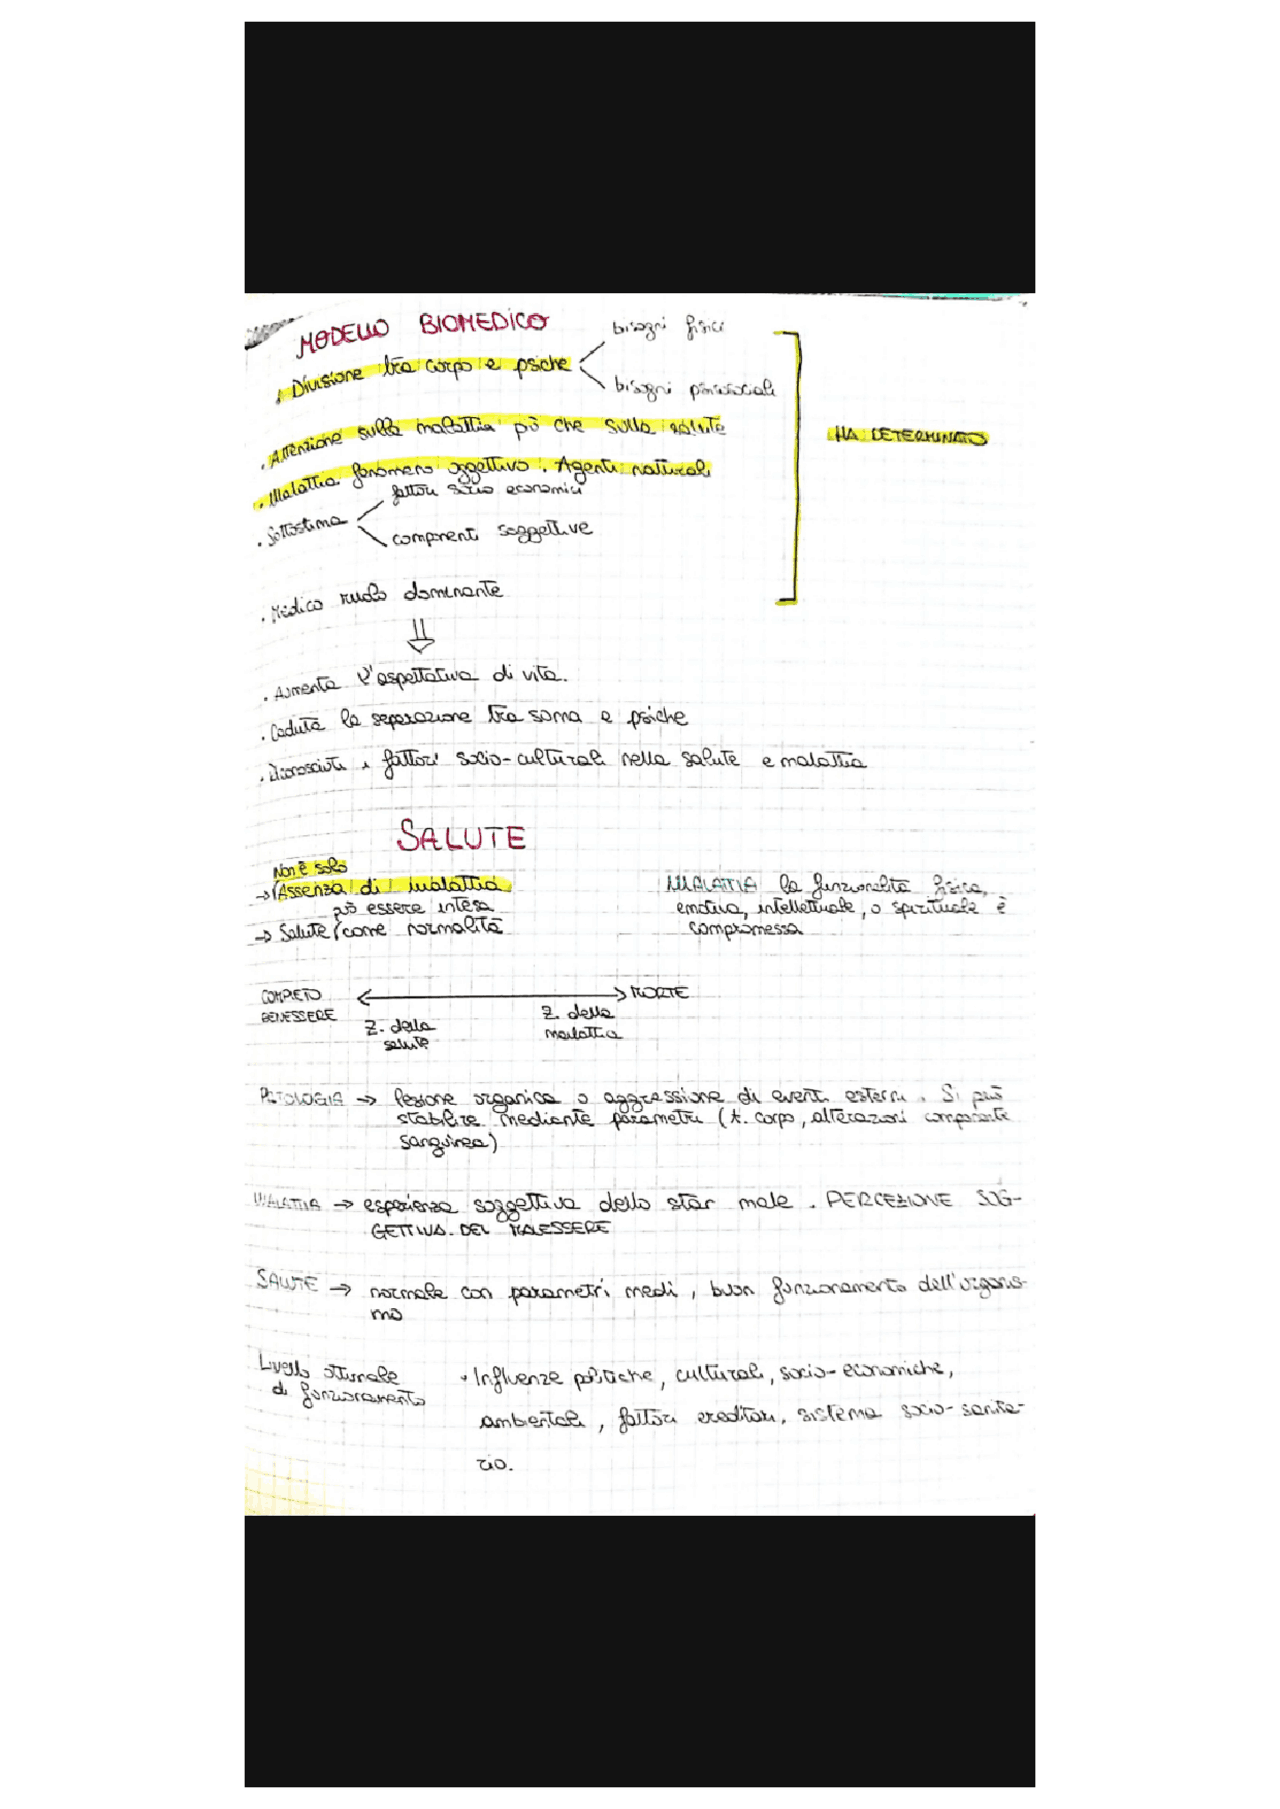 MODELLO BIOMEDICO
bisogni fisici
. Divisione tra corpo e psiche
bisogni psicosociali
. Attenzione sulla malattia più che sulla salute
HA DETERMINATO
. Malattia fenomeno oggettivo. Agenti naturali
fattori socio economici
. Sottostima
componenti soggettive
. Medico ruolo dominante
. Aumenta l'aspettativa di vita.
. Caduta la separazione tra soma e psiche
. Riconosciuti i fattori socio-culturali nella salute e malattia
SALUTE
Non è solo
→ Assenza di malattia
può essere intesa
→ Salute come normalità
MALATTIA la funzionalità fisica,
emotiva, intellettuale, o spirituale è
compromessa
COMPLETO
BENESSERE
MORTE
Z. della
salute
Z. della
malattia
PATOLOGIA → lesione organica o aggressione di eventi esterni. Si può
stabilire mediante parametri (t. corpo, alterazioni componente
sanguinea)
MALATTIA → esperienza soggettiva dello star male. PERCEZIONE SOG-
GETTIVA DEL MALESSERE
SALUTE → normale con parametri medi, buon funzionamento dell'organis-
mo
Livello ottimale
di funzionamento
• Influenze politiche, culturali, socio-economiche,
ambientali, fattori ereditari, sistema socio-sanita-
rio.